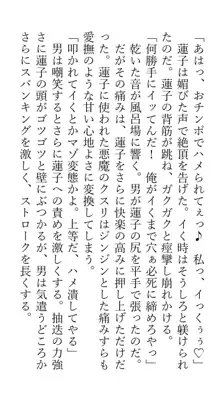 「あはっ、おチンポでハメられてぇっ♪　私っ、イっくぅぅ♡」
　蓮子は媚びた声で絶頂を告げた。イく時はそうしろと躾けられ
たのだ。蓮子の背筋が跳ね、ガクガクと痙攣し崩れかける。
「何勝手にイッてんだ！　俺がイくまで穴必死に締めろやっ」
　乾いた音が風呂場に響く。男が蓮子の尻を平手で張ったのだ。
　だがその痛みは、蓮子をさらに快楽の高みに押し上げただけだ
った。蓮子に使われた悪魔のクスリはジンジンとした痛みすらも
愛撫のような甘い心地よさに変換してしまう。
「叩かれてイくとかマゾ変態かよ。上等だ、ハメ潰してやる」
　男は嘲笑するとさらに蓮子への責めを激しくする。抽迭の力強
さに蓮子の頭がゴツゴツと壁にぶつかるが、男は気遣うどころか
さらにスパンキングを激しく、ストロークを長くする。